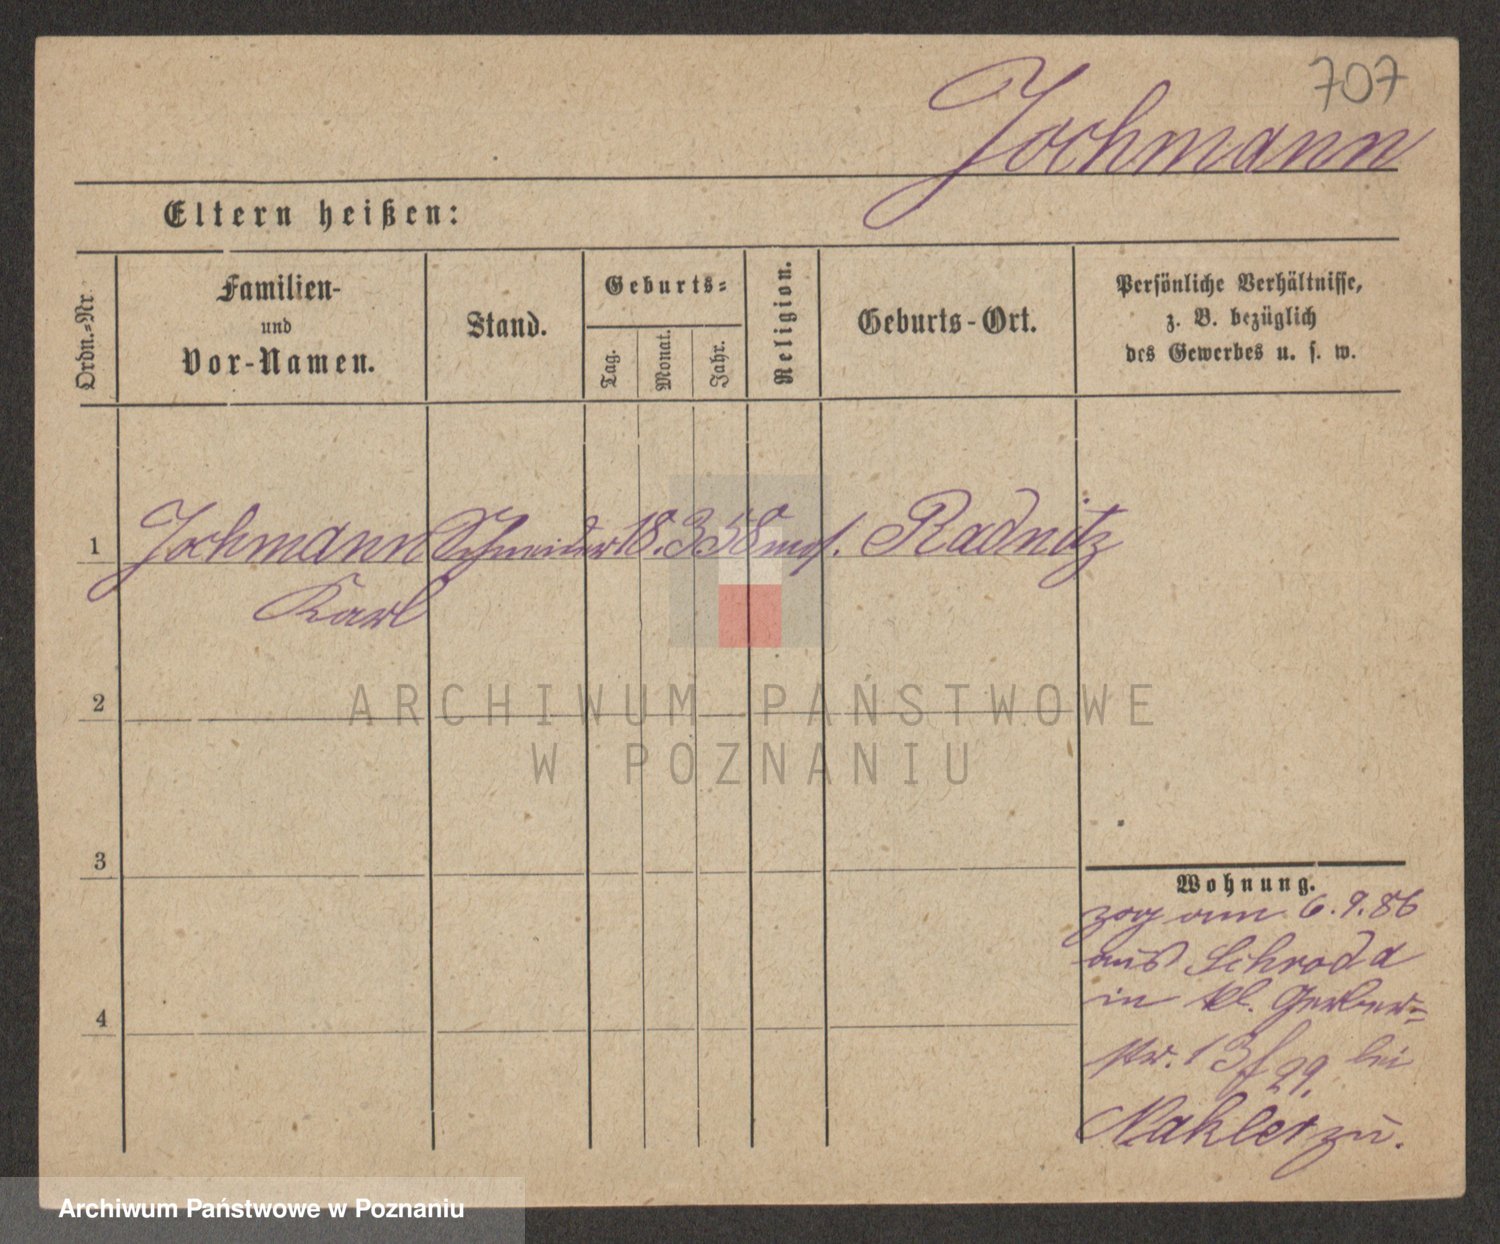 707
Jochmann
Eltern heißen:
Ordn.=Nr.
Familien-
und
Vor-Namen.
Stand.
Geburts=
Tag.
Monat.
Jahr.
Religion.
Geburts-Ort.
Persönliche Verhältnisse,
z. B. bezüglich
des Gewerbes u. s. w.
1 Jochmann Schneider 18. 3. 58 mos. Radnitz
Karl
2
3
4
Wohnung.
zog am 6. 9. 86
aus Schroda
in kl. Gerber=
str. 13 bei
Nahler zu.
ARCHIWUM PAŃSTWOWE
W POZNANIU
Archiwum Państwowe w Poznaniu